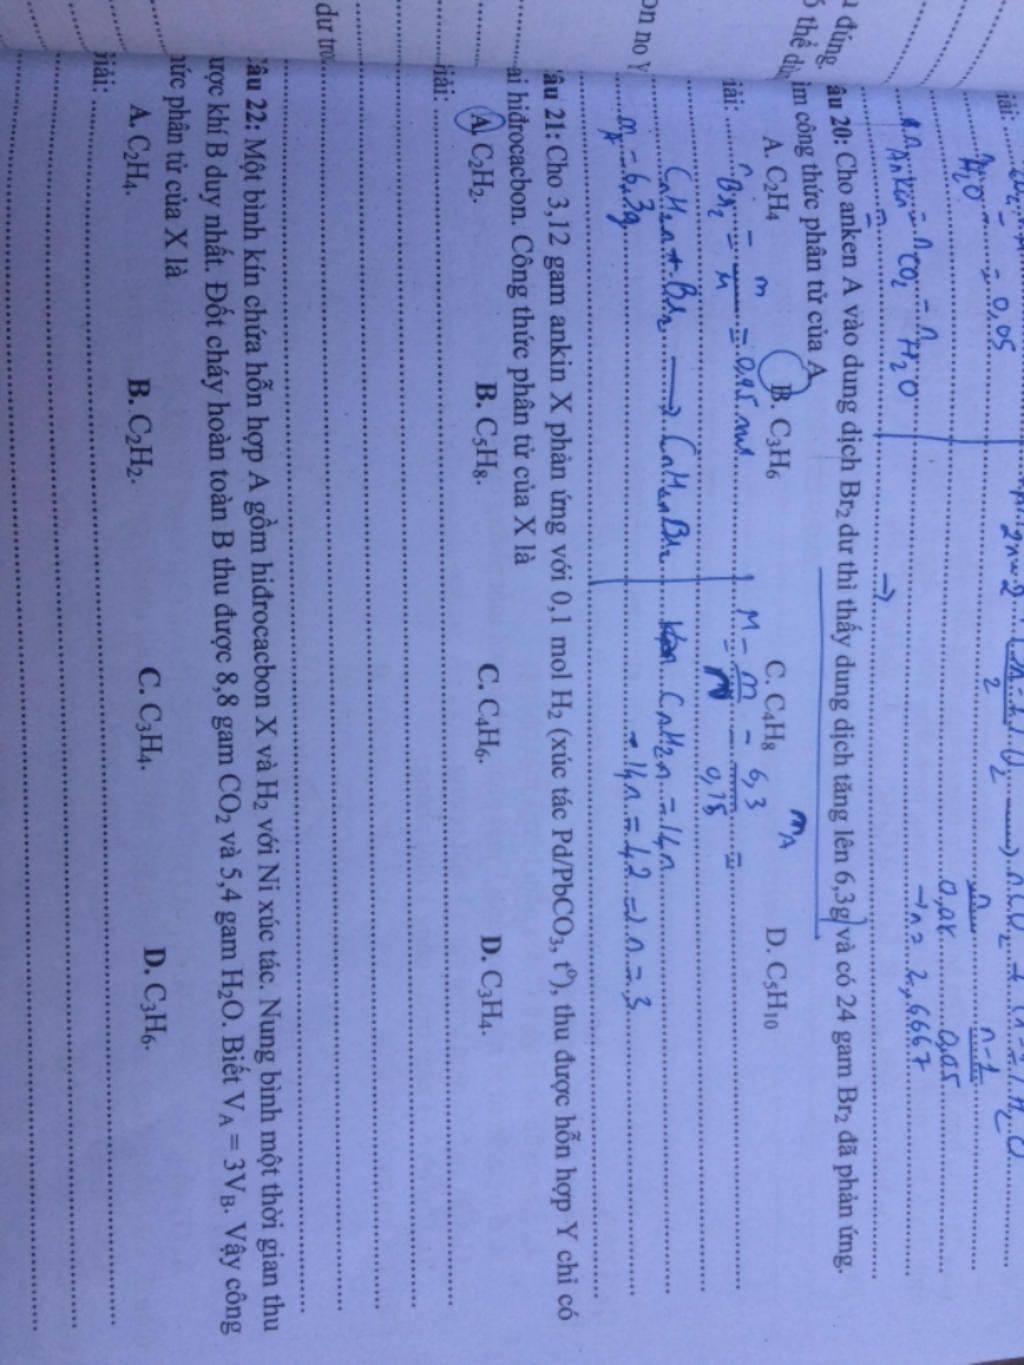 iải: ....
nH₂O = 0,05
0,0x 0,05
nAnken = nCO₂ - nH₂O
→ n = 2,6667
u đúng.
âu 20: Cho anken A vào dung dịch Br₂ dư thì thấy dung dịch tăng lên 6,3g và có 24 gam Br₂ đã phản ứng.
ìm công thức phân tử của A
mA
A. C₂H₄ B. C₃H₆ C. C₄H₈ D. C₅H₁₀
iải: nBr₂ = m/M = 0,15 mol M = m/n = 6,3/0,15 =
CnH₂n + Br₂ → CnH₂nBr₂ CnH₂n = 14n
mA = 6,3g 14n = 42 => n = 3
on no
âu 21: Cho 3,12 gam ankin X phản ứng với 0,1 mol H₂ (xúc tác Pd/PbCO₃, t⁰), thu được hỗn hợp Y chỉ có
ai hiđrocacbon. Công thức phân tử của X là
A. C₂H₂. B. C₅H₈. C. C₄H₆. D. C₃H₄.
iải: ....
dư tro
âu 22: Một bình kín chứa hỗn hợp A gồm hiđrocacbon X và H₂ với Ni xúc tác. Nung bình một thời gian thu
ược khí B duy nhất. Đốt cháy hoàn toàn B thu được 8,8 gam CO₂ và 5,4 gam H₂O. Biết V_A = 3V_B. Vậy công
hức phân tử của X là
A. C₂H₄. B. C₂H₂. C. C₃H₄. D. C₃H₆.
iải: ....